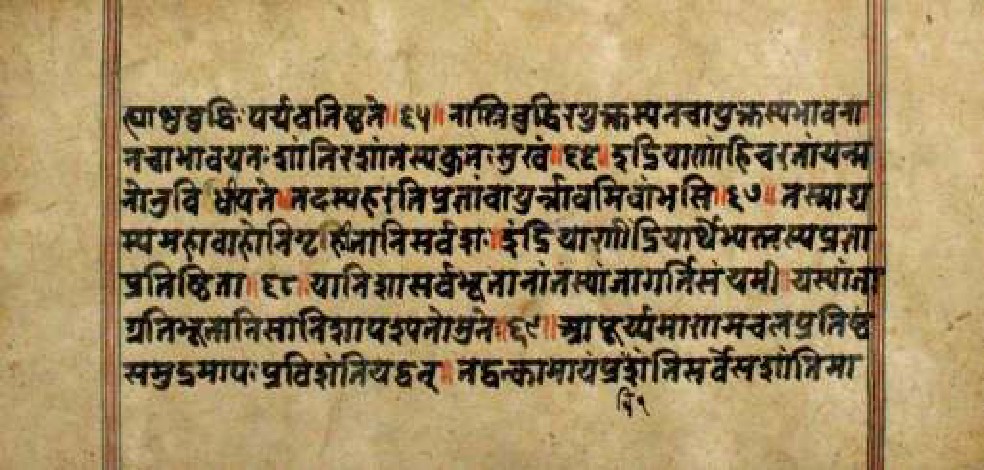 ह्याशुबुद्धिः पर्यवतिष्ठते ॥ ६५ ॥ नास्तिबुद्धिरयुक्तस्यनचायुक्तस्यभावना
नचाभावयतः शांतिरशांतस्यकुतः सुखं ॥ ६६ ॥ इंद्रियाणांहिचरतांयन्म
नोनुविधीयते ॥ तदस्यहरतिप्रज्ञांवायुर्न्नावमिवांभसि ॥ ६७ ॥ तस्माद्य
स्यमहाबाहोनिगृहीतानिसर्वशः ॥ इंद्रियाणींद्रियार्थेभ्यस्तस्यप्रज्ञा
प्रतिष्ठिता ॥ ६८ ॥ यानिशासर्वभूतानांतस्यांजागर्तिसंयमी ॥ यस्यांजा
ग्रतिभूतानिसानिशापश्यतोमुनेः ॥ ६९ ॥ आपूर्य्यमाणमचलप्रतिष्ठ
समुद्रमापः प्रविशंतियद्वत् ॥ तद्वत्कामायंप्रशंतिसर्वेसशांतिमा
वि १